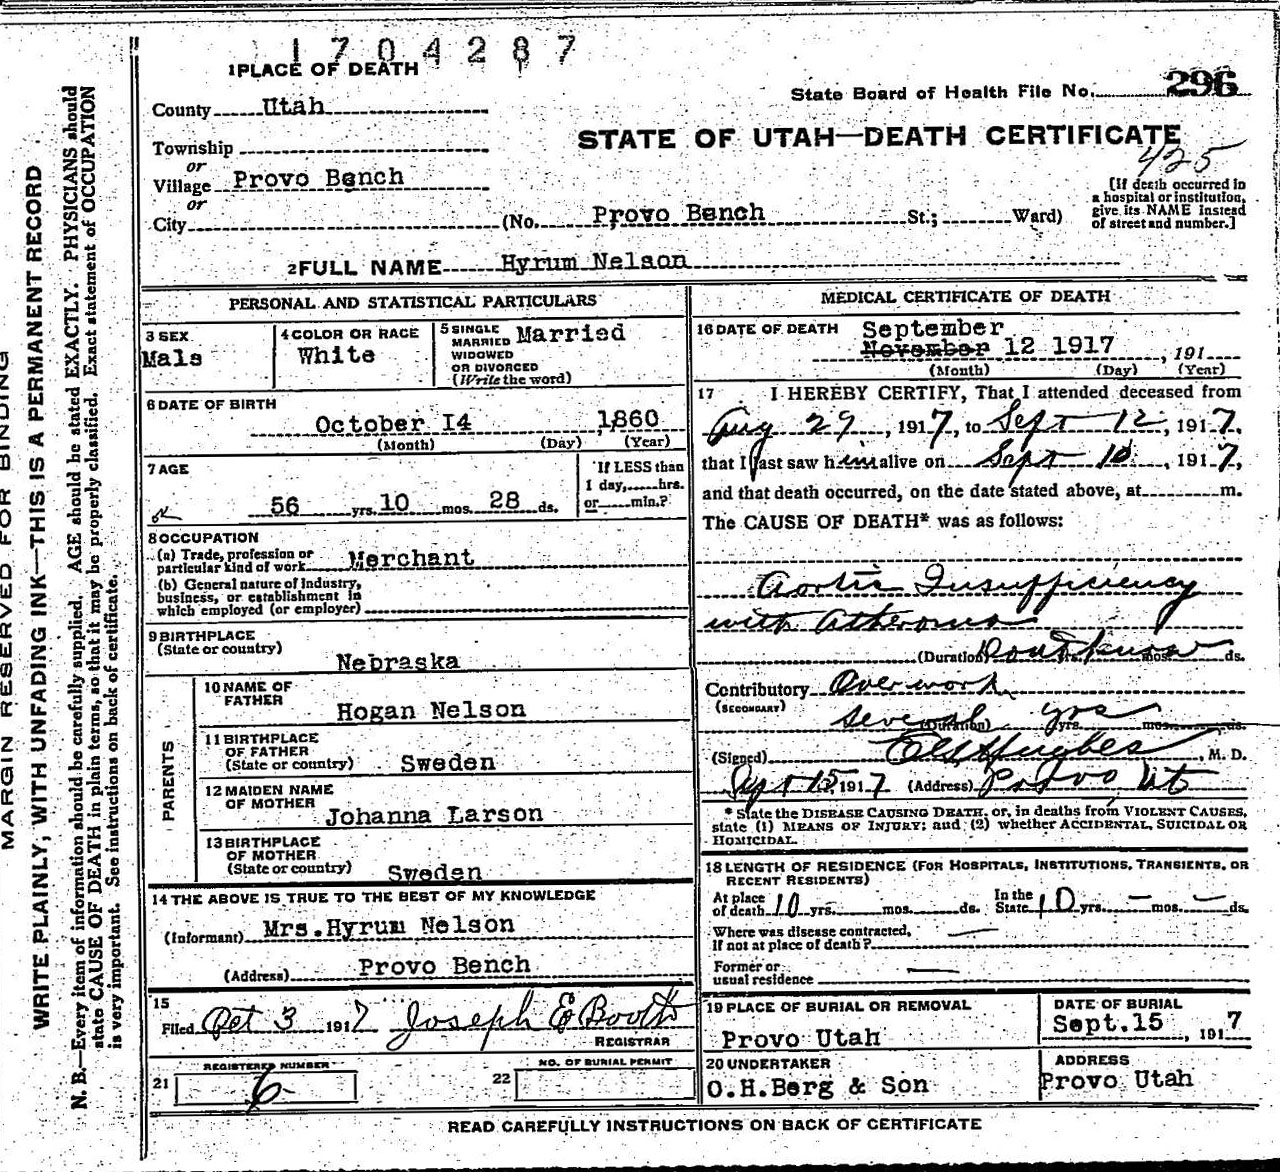 1704287
1 PLACE OF DEATH
State Board of Health File No. 296
County Utah
STATE OF UTAH—DEATH CERTIFICATE
425
Township
or
Village Provo Bench
or
City (No. Provo Bench St.; Ward)
[If death occurred in
a hospital or institution,
give its NAME instead
of street and number.]
2 FULL NAME Hyrum Nelson
PERSONAL AND STATISTICAL PARTICULARS
3 SEX
Male
4 COLOR OR RACE
White
5 SINGLE
MARRIED
WIDOWED
OR DIVORCED
(Write the word)
Married
6 DATE OF BIRTH
October I4 , 1860
(Month) (Day) (Year)
7 AGE
56 yrs. 10 mos. 28 ds.
If LESS than
1 day, hrs.
or min.?
8 OCCUPATION
(a) Trade, profession or
particular kind of work Merchant
(b) General nature of Industry,
business, or establishment in
which employed (or employer)
9 BIRTHPLACE
(State or country)
Nebraska
PARENTS
10 NAME OF
FATHER
Hogan Nelson
11 BIRTHPLACE
OF FATHER
(State or country) Sweden
12 MAIDEN NAME
OF MOTHER
Johanna Larson
13 BIRTHPLACE
OF MOTHER
(State or country) Sweden
14 THE ABOVE IS TRUE TO THE BEST OF MY KNOWLEDGE
(Informant) Mrs.Hyrum Nelson
(Address) Provo Bench
15
Filed Oct 3 1917 Joseph E Booth
REGISTRAR
REGISTERED NUMBER
21 6
NO. OF BURIAL PERMIT
22
MEDICAL CERTIFICATE OF DEATH
16 DATE OF DEATH September
November 12 1917 , 191
(Month) (Day) (Year)
17 I HEREBY CERTIFY, That I attended deceased from
Aug 29 , 1917, to Sept 12, 1917,
that I last saw him alive on Sept 10 , 1917,
and that death occurred, on the date stated above, at m.
The CAUSE OF DEATH* was as follows:
Aortic Insufficiency
with Atheroma
(Duration) Dont know yrs. mos. ds.
Contributory Overwork
(SECONDARY)
several yrs
(Duration) yrs. mos. ds.
(Signed) Hughes, M. D.
Sept 15 1917 (Address) Provo Ut
* State the DISEASE CAUSING DEATH, or, in deaths from VIOLENT CAUSES,
state (1) MEANS OF INJURY; and (2) whether ACCIDENTAL, SUICIDAL OR
HOMICIDAL.
18 LENGTH OF RESIDENCE (FOR HOSPITALS, INSTITUTIONS, TRANSIENTS, OR
RECENT RESIDENTS)
At place
of death 10 yrs. mos. ds.
In the
State 10 yrs. — mos. — ds.
Where was disease contracted,
If not at place of death? —
Former or
usual residence —
19 PLACE OF BURIAL OR REMOVAL
Provo Utah
DATE OF BURIAL
Sept.15 , 1917
20 UNDERTAKER
O.H.Berg & Son
ADDRESS
Provo Utah
READ CAREFULLY INSTRUCTIONS ON BACK OF CERTIFICATE
MARGIN RESERVED FOR BINDING
WRITE PLAINLY, WITH UNFADING INK—THIS IS A PERMANENT RECORD
N. B.—Every item of information should be carefully supplied. AGE should be stated EXACTLY. PHYSICIANS should
state CAUSE OF DEATH in plain terms, so that it may be properly classified. Exact statement of OCCUPATION
is very important. See instructions on back of certificate.